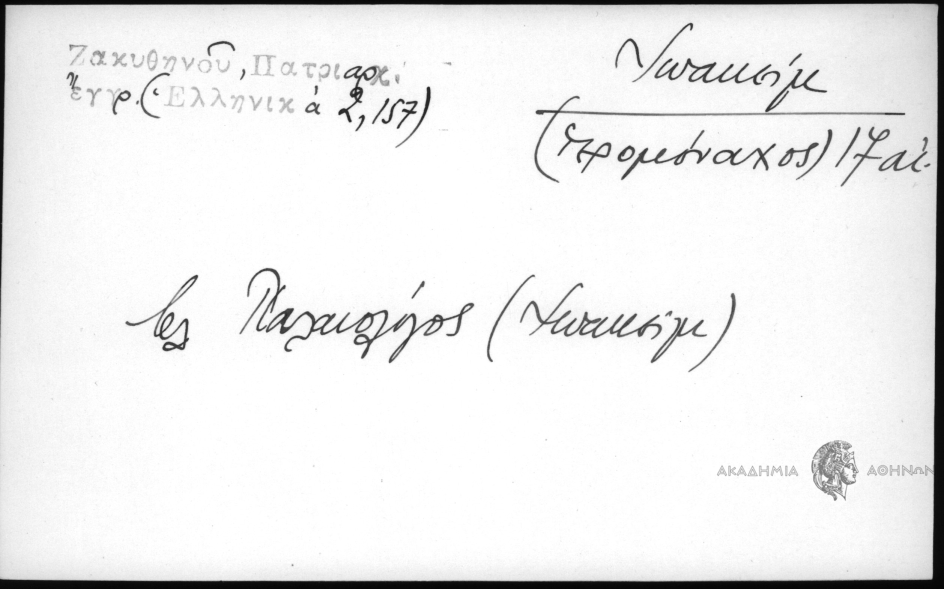 Ζακυθηνοῦ, Πατριαρχ.
ἔγγρ. (Ἑλληνικά 2, 157)
Ἰωακείμ
(ἱερομόναχος) 17 αἰ.
βλ Παλαιολόγος (Ἰωακείμ)
ΑΚΑΔΗΜΙΑ ΑΘΗΝΩΝ